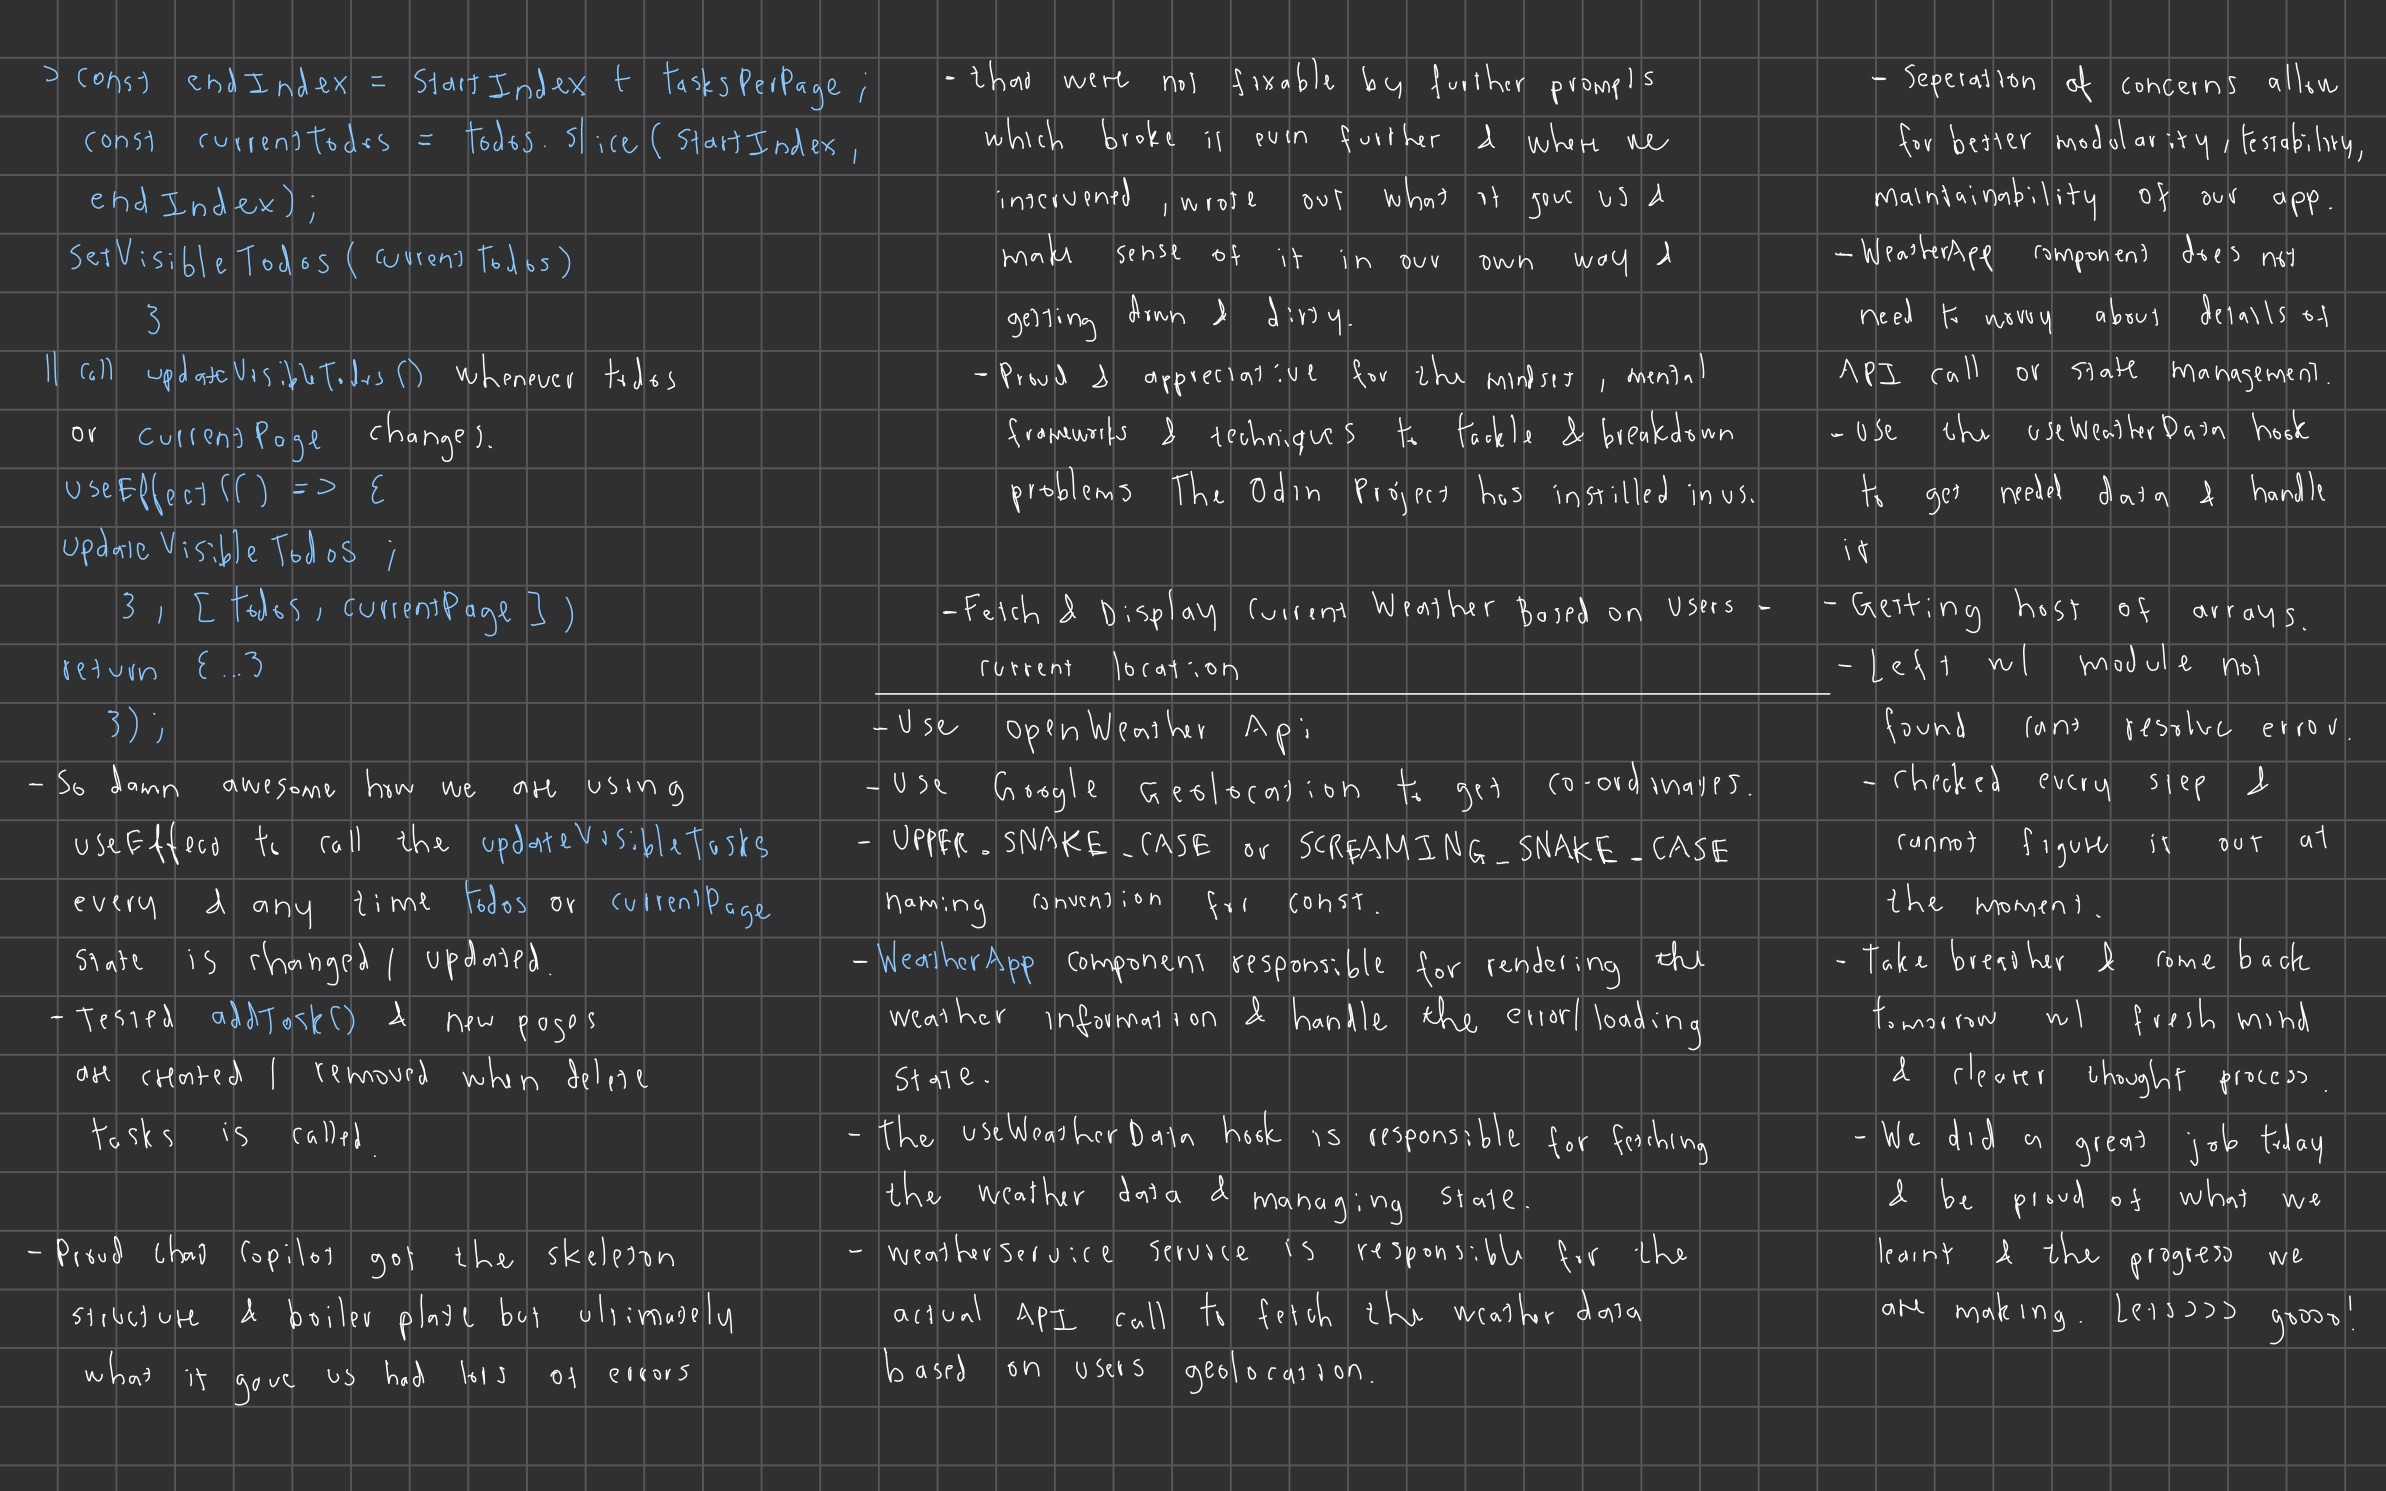 > const endIndex = startIndex + tasksPerPage ;
const currentTodos = todos. slice ( startIndex ,
endIndex ) ;
setVisibleTodos ( currentTodos )
}
|| call updateVisibleTodos () whenever todos
or currentPage changes.
useEffect (( ) => {
updateVisibleTodos ;
} , [ todos , currentPage ] )
return { ... }
} ) ;
- So damn awesome how we are using
useEffect to call the updateVisibleTasks
every & any time todos or currentPage
state is changed / updated.
- Tested addTask() & new pages
are created / removed when delete
tasks is called.
- Proud that Copilot got the skeleton
structure & boiler plate but ultimately
what it gave us had lots of errors
- that were not fixable by further prompts
which broke it even further & where we
intervened , wrote out what it gave us &
make sense of it in our own way &
getting down & dirty.
- Proud & appreciative for the mindset , mental
frameworks & techniques to tackle & breakdown
problems The Odin Project has instilled in us.
- Fetch & Display Current Weather Based on Users -
current location
- Use openWeather Api
- Use Google Geolocation to get co-ordinates.
- UPPER_SNAKE_CASE or SCREAMING_SNAKE_CASE
naming convention for const.
- WeatherApp component responsible for rendering the
weather information & handle the error/loading
state.
- The useWeatherData hook is responsible for fetching
the weather data & managing state.
- weatherService service is responsible for the
actual API call to fetch the weather data
based on users geolocation.
- Seperation of concerns allow
for better modularity , testability,
maintainability of our app.
- WeatherApp component does not
need to worry about details of
API call or state management.
- Use the useWeatherData hook
to get needed data & handle
it
- Getting host of arrays.
- Left w/ module not
found cant resolve error.
- Checked every step &
cannot figure it out at
the moment.
- Take breather & come back
tomorrow w/ fresh mind
& clearer thought process.
- We did a great job today
& be proud of what we
learnt & the progress we
are making. Letssss goooo!